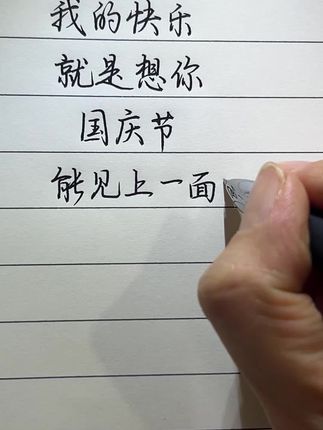 我的快乐
就是想你
国庆节
能见上一面